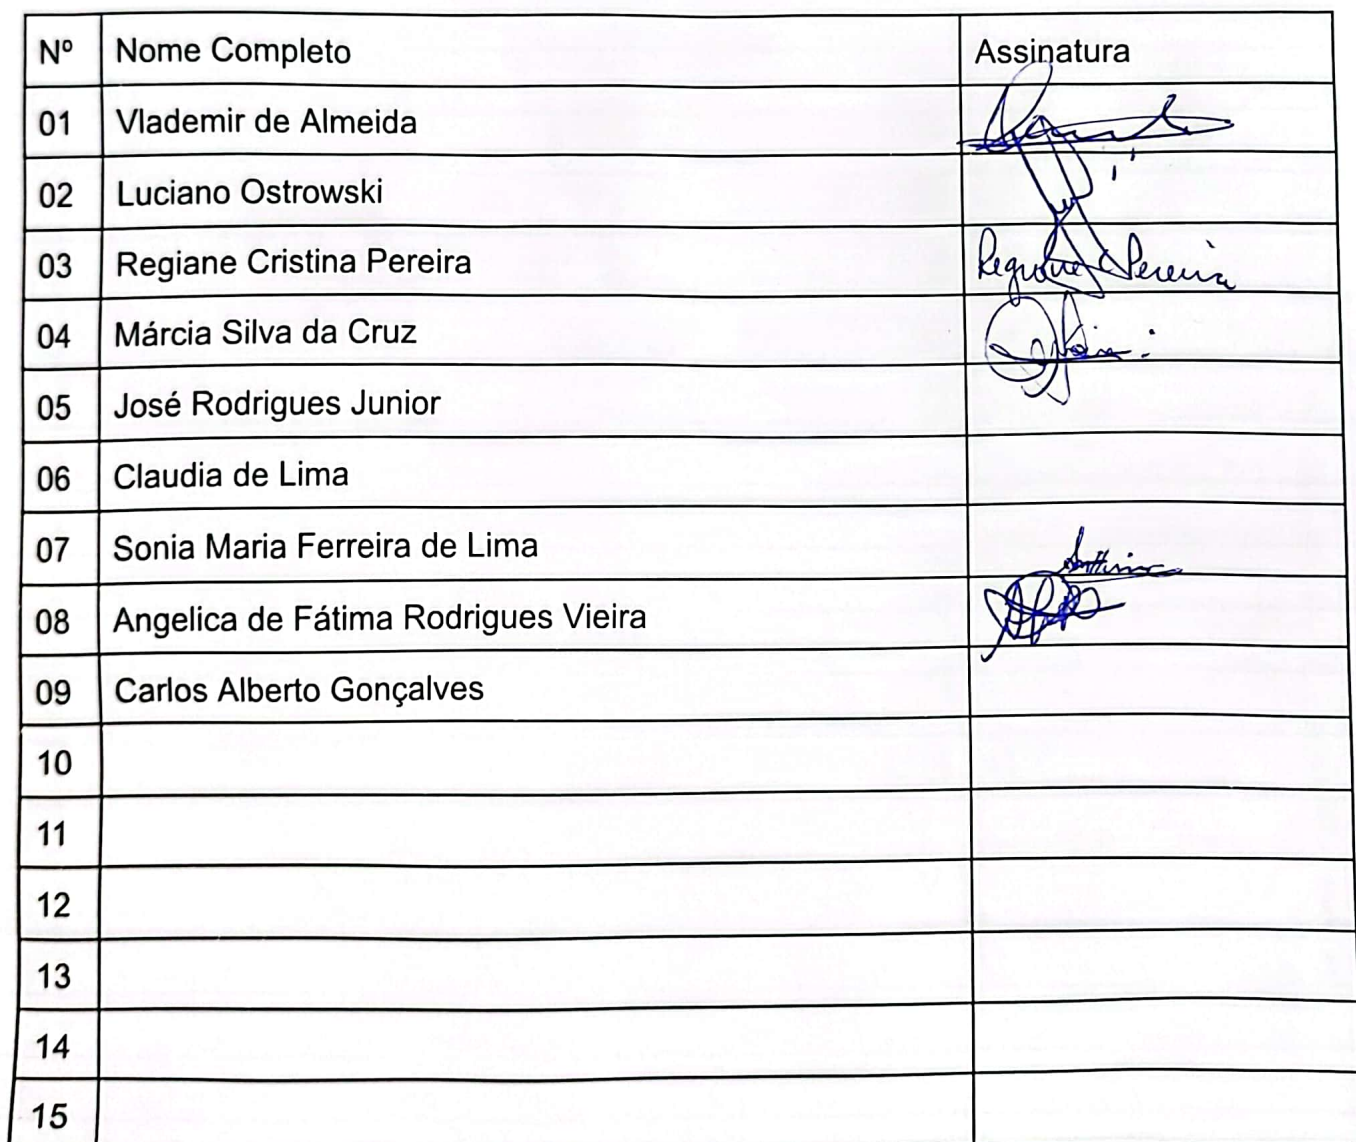 Nº Nome Completo Assinatura
01 Vlademir de Almeida
02 Luciano Ostrowski
03 Regiane Cristina Pereira Regiane Pereira
04 Márcia Silva da Cruz
05 José Rodrigues Junior
06 Claudia de Lima
07 Sonia Maria Ferreira de Lima
08 Angelica de Fátima Rodrigues Vieira
09 Carlos Alberto Gonçalves
10
11
12
13
14
15